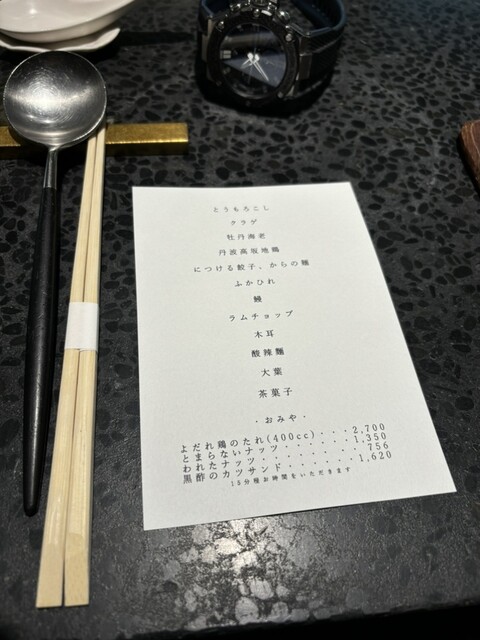 とうもろこし
クラゲ
牡丹海老
丹波高坂地鶏
につける餃子、からの麺
ふかひれ
鰻
ラムチョップ
木耳
酸辣麺
大葉
茶菓子
・おみや・
よだれ鶏のたれ(400cc)・・・2,700
とまらないナッツ・・・・・・1,350
われたナッツ・・・・・・・・756
黒酢のカツサンド・・・・・・1,620
15分程お時間をいただきます